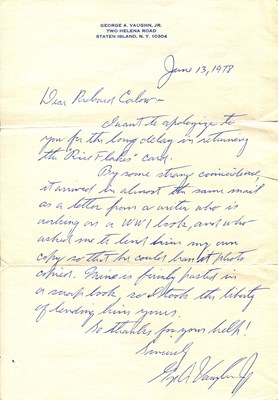 GEORGE A. VAUGHN, JR.
TWO HELENA ROAD
STATEN ISLAND, N. Y. 10304
June 13, 1978
Dear Richard
I want to apologize to
you for the long delay in returning
the "Rice Flakes" card.
By some strange coincidence,
it arrived in almost the same mail
as a letter from a writer who is
working on a WWI book, and who
asked me to lend him my own
copy so that he could have it photo
copied. Mine is firmly pasted in
a scrap book, so I took the liberty
of lending him yours.
So thanks for your help!
Sincerely
Geo A Vaughn Jr